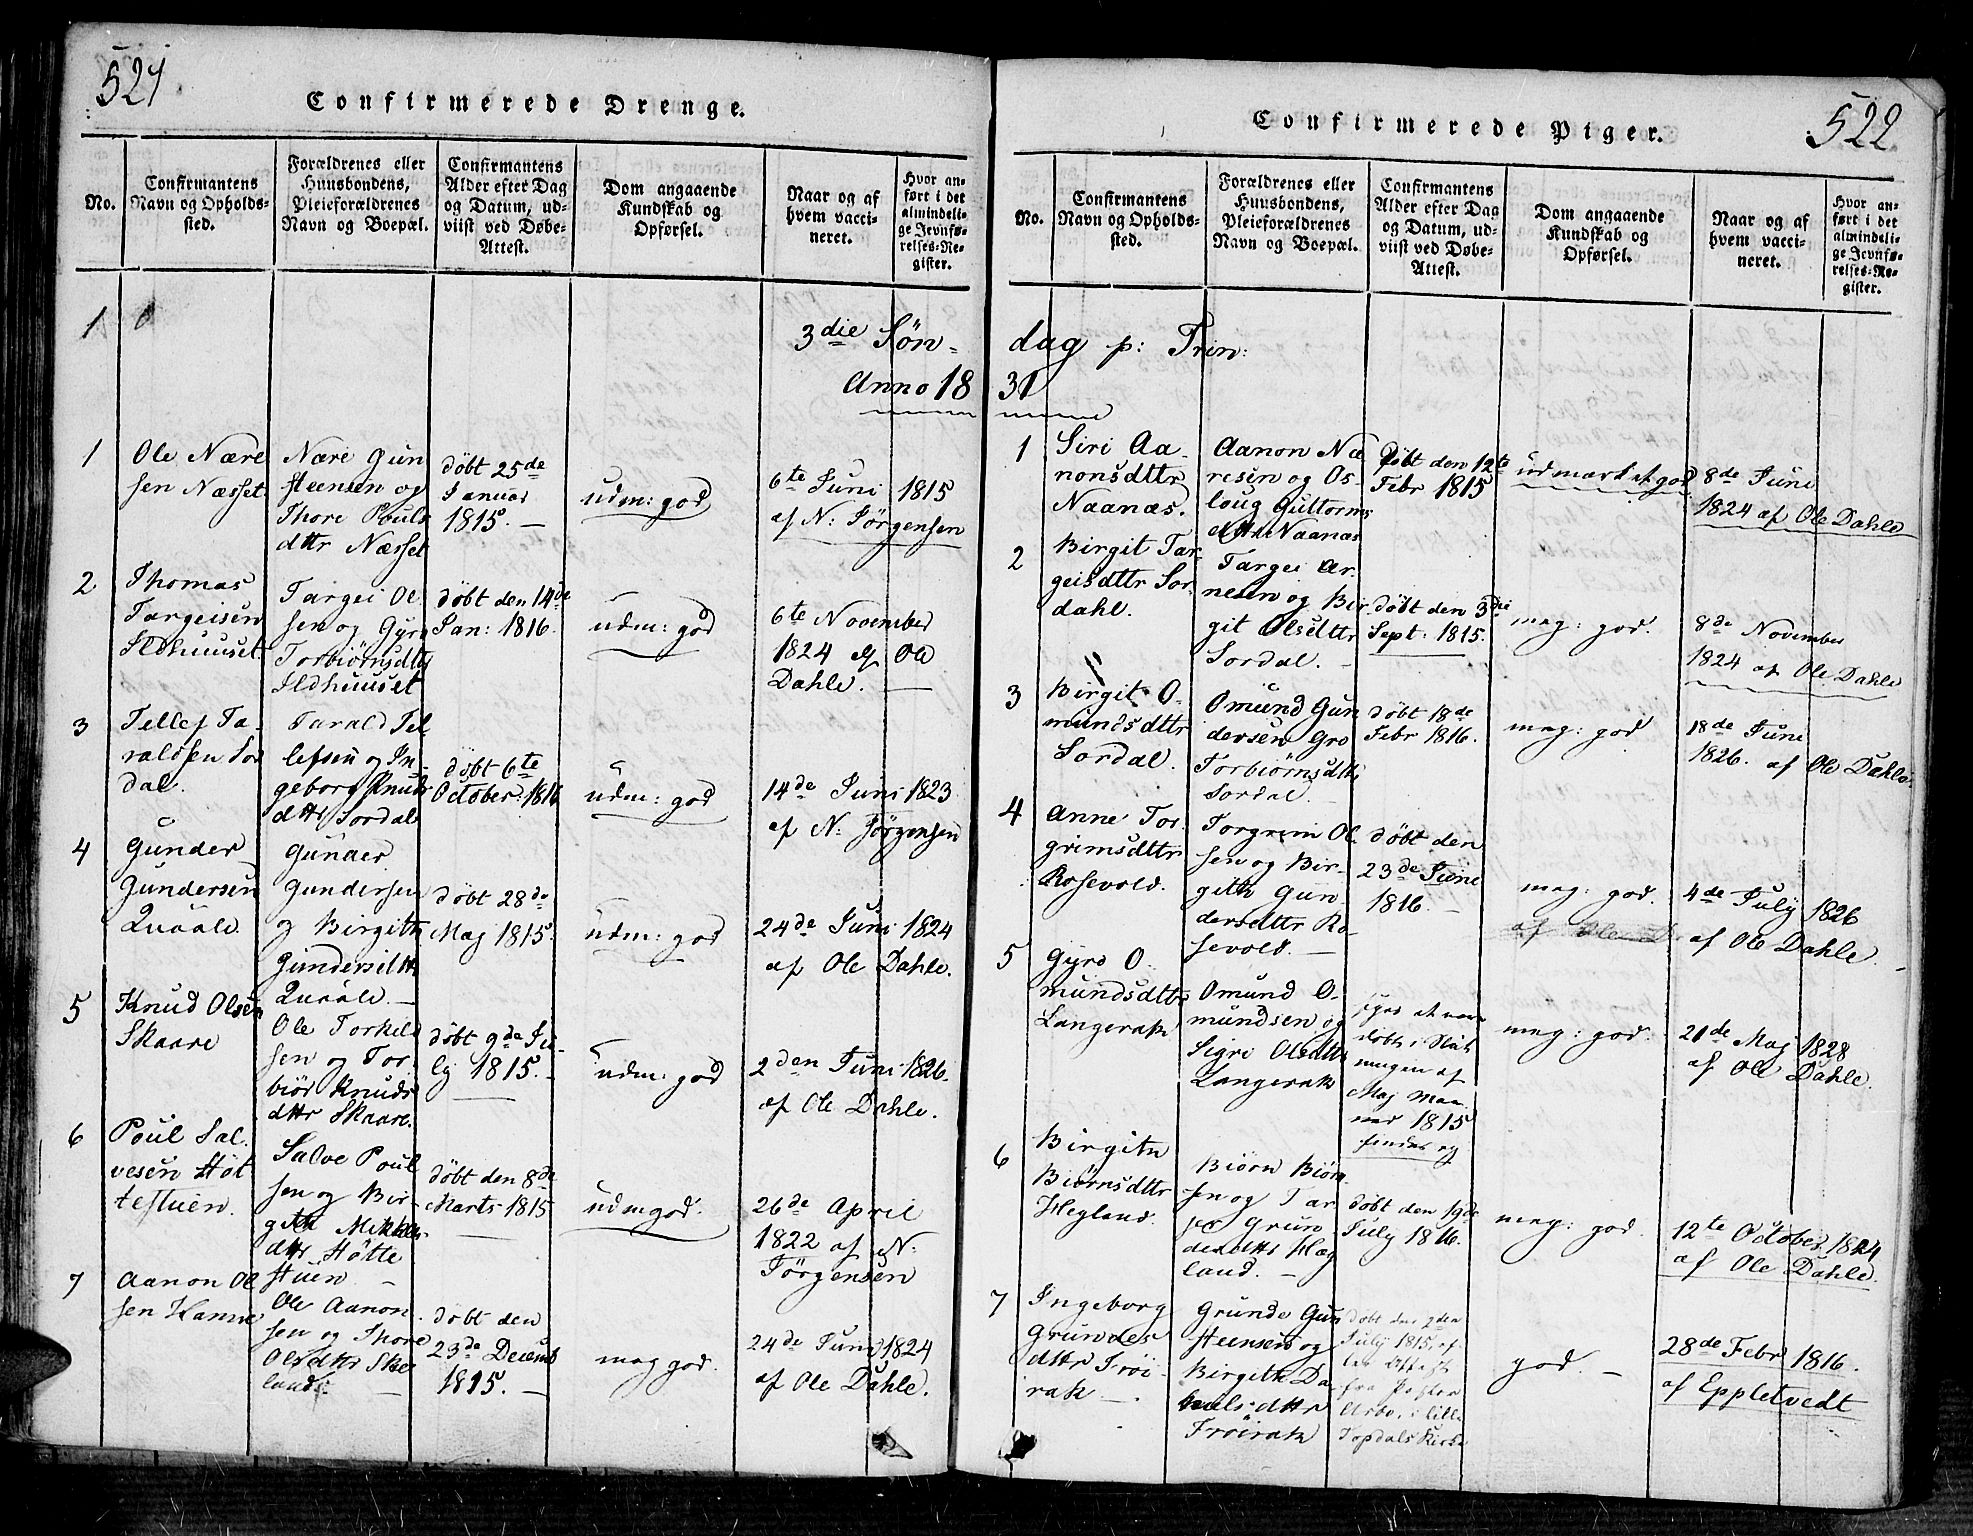 521
Confirmerede Drenge.
No.
Confirmantens
Navn og Opholds-
sted.
Forældrenes eller
Huusbondens,
Pleieforældrenes
Navn og Boepæl.
Confirmantens
Alder efter Dag
og Datum, ud-
viist ved Døbe-
Attest.
Dom angaaende
Kundskab og
Opførsel.
Naar og af
hvem vacci-
neret.
Hvor an-
ført i det
almindeli-
ge Jevnfø-
relses-Re-
gister.
1
3die Søn-
Anno 18
1
Ole Nære
sen Næsset
Nære Gun
steensen og
Thore Pouls
dttr Næsset
døbt 25de
Januar
1815. —
udm: god
6te Juni 1815
af N: Jørgensen
2
Thomas
Targeisen
Ildhuuset
Targei Ol
sen og Gyro
Torbiørnsdttr
Ildhuuset
døbt den 14de
Jan: 1816.
udm: god
6te November
1824 af Ole
Dahle. —
3
Tellef Ta-
raldsen Sor
dal.
Tarald Tel
lefsen og In-
geborg Knuds
dttr Sordal
døbt 6te
October: 1816
udm: god
14de Juni 1823
af N: Jørgensen
4
Gunder
Gundersen
Quaale.
Gunder
Gundersen
og Birgith
Gundersdttr
Quaale. —
døbt 28de
Maj 1815.
udm: god
24de Juni 1824
af Ole Dahle.
5
Knud Olsen
Skaare
Ole Torkild
sen og Tor
biør Knuds
dttr Skaare.
døbt 9de Ju-
ly 1815. —
udm: god
2den Juni 1826.
af Ole Dahle.
6
Poul Sal-
vesen Høt
testuen.
Salve Poul
sen og Bir-
gith Mikkels-
dttr Høtte
stuen. —
døbt den 8de
Marts 1815
udm god.
26de April
1822 af N:
Jørgensen
7
Aanon Ol
sen Hanne
Ole Aanon-
sen og Thore
Olsdttr Ske
lands. —
døbt den
23de Decemb
1815. —
mag god.
24de Juni 1824
af Ole Dahle.
522
Confirmerede Piger.
No.
Confirmantens
Navn og Opholds-
sted.
Forældrenes eller
Huusbondens,
Pleieforældrenes
Navn og Boepæl.
Confirmantens
Alder efter Dag
og Datum, ud-
viist ved Døbe-
Attest.
Dom angaaende
Kundskab og
Opførsel.
Naar og af
hvem vacci-
neret.
Hvor an-
ført i det
almindeli-
ge Jevnfø-
relses-Re-
gister.
dag p: Trin:
31
1
Siri Aa-
nonsdttr
Naanæs.
Aanon Næ
resen og Os-
loug Guttorms
dttr Naanæs
Døbt den 12te
Febr 1815
udmærket god
8de Juni
1824 af Ole Dahle
2
Birgit Tar-
geisdttr Sor-
dahl.
Targei Ar-
nesen og Bir-
git Olsdttr
Sordal. —
døbt den 3die
Sept: 1815.
meg: god.
8de November
1824 af Ole Dahle
3
Birgit O-
mundsdttr
Sordal.
Omund Gun
dersen Gro
Torbiørnsdttr
Sordal. —
døbt 18de
Febr 1816.
meg: god
18de Juni
1826. af Ole Dahle.
4
Anne Tor-
grimsdttr
Rosevold.
Torgrim Ol
sen og Bir-
gith Gun
dersdttr Ro-
sevold. —
døbt den
23de Juni
1816. —
meg: god.
4de July 1826
af Ole Dahle.
5
Gyro O-
mundsdttr
Langerak
Omund O-
mundsen og
Sigri Olsdttr
Langerak
siges at være
døbt i Slut
ningen af
Maj Maa-
ned 1815
findes ej
meg: god.
21de Maj 1828
af Ole Dahle.
6
Birgith
Biørnsdttr
Hegland.
Biørn Biørn
sen og Tar
je Grun
desdttr Hæg
land. —
døbt den 19de
July 1816.
meg: god.
12te October 1824
af Ole Dahle.
7
Ingeborg
Grundes
dttr Frøi-
rak —
Grunde Gun
steensen og
Birgith Da-
nielsdttr
Frøirak
Døbt den 2den
July 1815, ef-
ter Attest
fra Pastor
Arbo, i Lille
Topdals Kirke
god —
28de Febr 1816.
af Eppletvedt